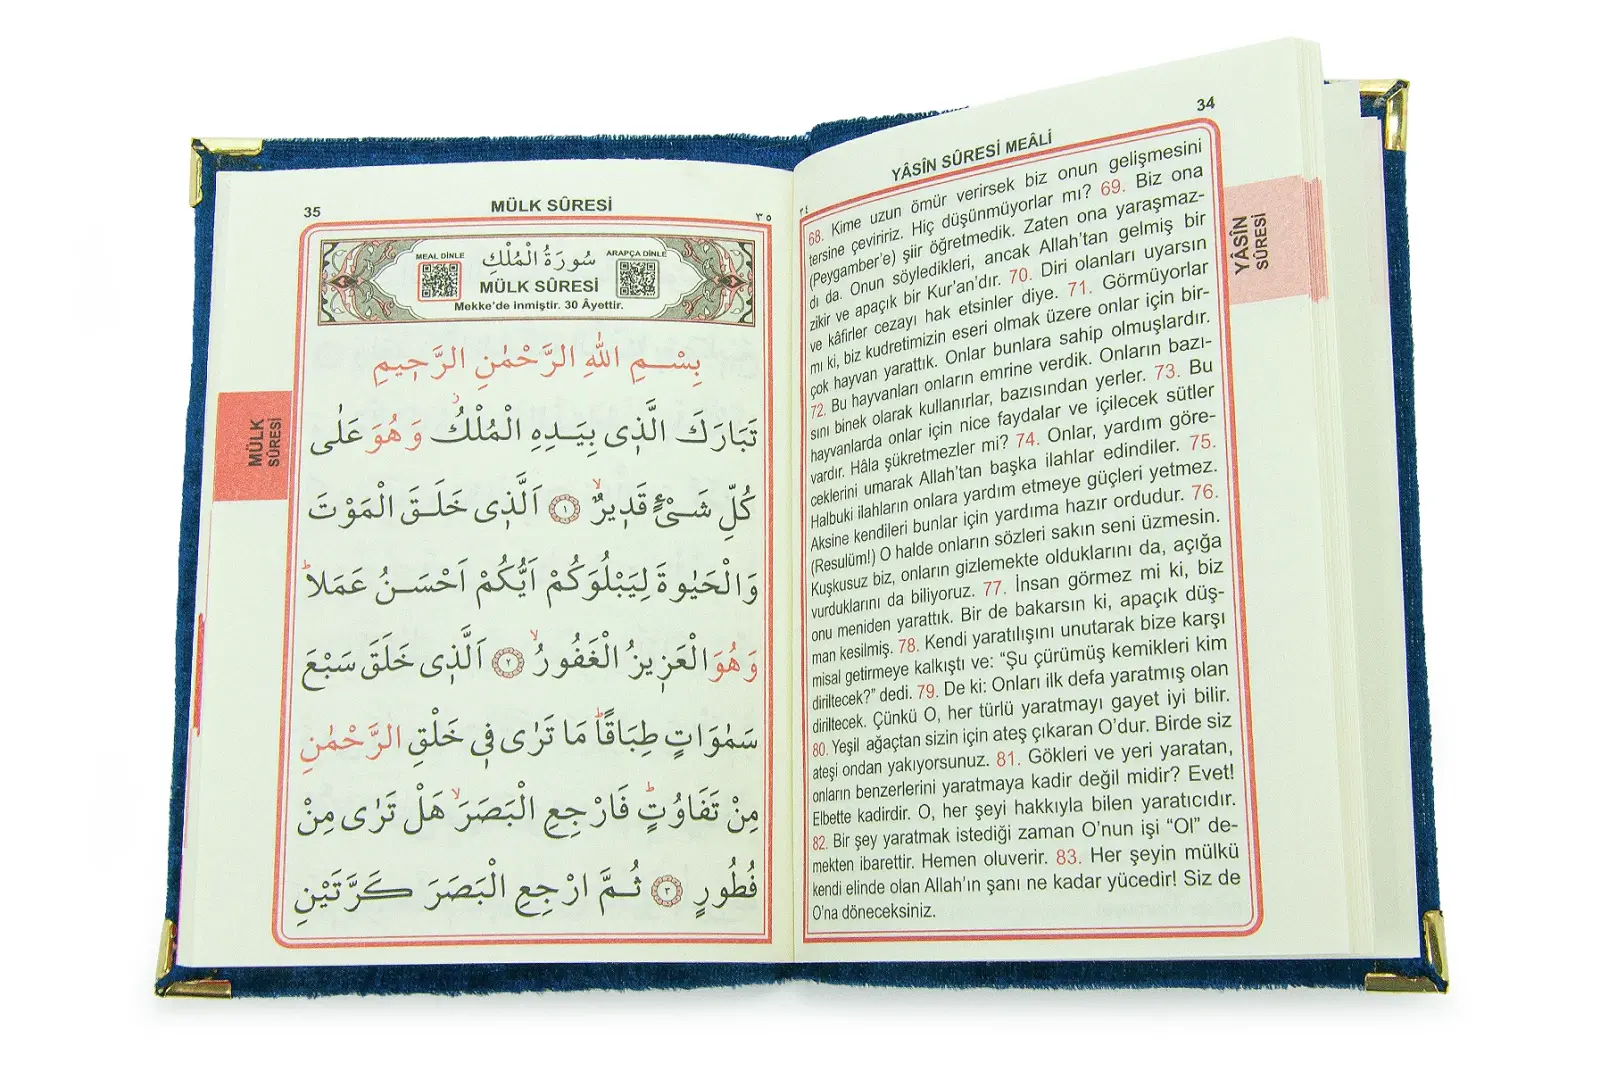 34
YÂSÎN SÛRESİ MEÂLİ
٣٤
68. Kime uzun ömür verirsek biz onun gelişmesini
tersine çeviririz. Hiç düşünmüyorlar mı? 69. Biz ona
(Peygamber'e) şiir öğretmedik. Zaten ona yaraşmaz-
dı da. Onun söyledikleri, ancak Allah'tan gelmiş bir
zikir ve apaçık bir Kur'an'dır. 70. Diri olanları uyarsın
ve kâfirler cezayı hak etsinler diye. 71. Görmüyorlar
mı ki, biz kudretimizin eseri olmak üzere onlar için bir-
çok hayvan yarattık. Onlar bunlara sahip olmuşlardır.
72. Bu hayvanları onların emrine verdik. Onların bazı-
sını binek olarak kullanırlar, bazısından yerler. 73. Bu
hayvanlarda onlar için nice faydalar ve içilecek sütler
vardır. Hâla şükretmezler mi? 74. Onlar, yardım göre-
ceklerini umarak Allah'tan başka ilahlar edindiler. 75.
Halbuki ilahların onlara yardım etmeye güçleri yetmez.
Aksine kendileri bunlar için yardıma hazır ordudur. 76.
(Resulüm!) O halde onların sözleri sakın seni üzmesin.
Kuşkusuz biz, onların gizlemekte olduklarını da, açığa
vurduklarını da biliyoruz. 77. İnsan görmez mi ki, biz
onu meniden yarattık. Bir de bakarsın ki, apaçık düş-
man kesilmiş. 78. Kendi yaratılışını unutarak bize karşı
misal getirmeye kalkıştı ve: "Şu çürümüş kemikleri kim
diriltecek?" dedi. 79. De ki: Onları ilk defa yaratmış olan
diriltecek. Çünkü O, her türlü yaratmayı gayet iyi bilir.
80. Yeşil ağaçtan sizin için ateş çıkaran O'dur. Birde siz
ateşi ondan yakıyorsunuz. 81. Gökleri ve yeri yaratan,
onların benzerlerini yaratmaya kadir değil midir? Evet!
Elbette kadirdir. O, her şeyi hakkıyla bilen yaratıcıdır.
82. Bir şey yaratmak istediği zaman O'nun işi "Ol" de-
mekten ibarettir. Hemen oluverir. 83. Her şeyin mülkü
kendi elinde olan Allah'ın şanı ne kadar yücedir! Siz de
O'na döneceksiniz.
YÂSÎN
SÛRESİ
35
MÜLK SÛRESİ
٣٥
MEAL DİNLE
سُورَةُ الْمُلْكِ
ARAPÇA DİNLE
MÜLK SÛRESİ
Mekke'de inmiştir. 30 Âyettir.
بِسْمِ اللهِ الرَّحْمٰنِ الرَّحِيمِ
تَبَارَكَ الَّذٖى بِيَدِهِ الْمُلْكُۘ وَهُوَ عَلٰى
كُلِّ شَىْءٍ قَدٖيرٌۙ ﴿١﴾ اَلَّذٖى خَلَقَ الْمَوْتَ
وَالْحَيٰوةَ لِيَبْلُوَكُمْ اَيُّكُمْ اَحْسَنُ عَمَلًاؕ
وَهُوَ الْعَزٖيزُ الْغَفُورُۙ ﴿٢﴾ اَلَّذٖى خَلَقَ سَبْعَ
سَمٰوَاتٍ طِبَاقًاؕ مَا تَرٰى فٖى خَلْقِ الرَّحْمٰنِ
مِنْ تَفَاوُتٍؕ فَارْجِعِ الْبَصَرَۙ هَلْ تَرٰى مِنْ
فُطُورٍ ﴿٣﴾ ثُمَّ ارْجِعِ الْبَصَرَ كَرَّتَيْنِ
MÜLK
SÛRESİ